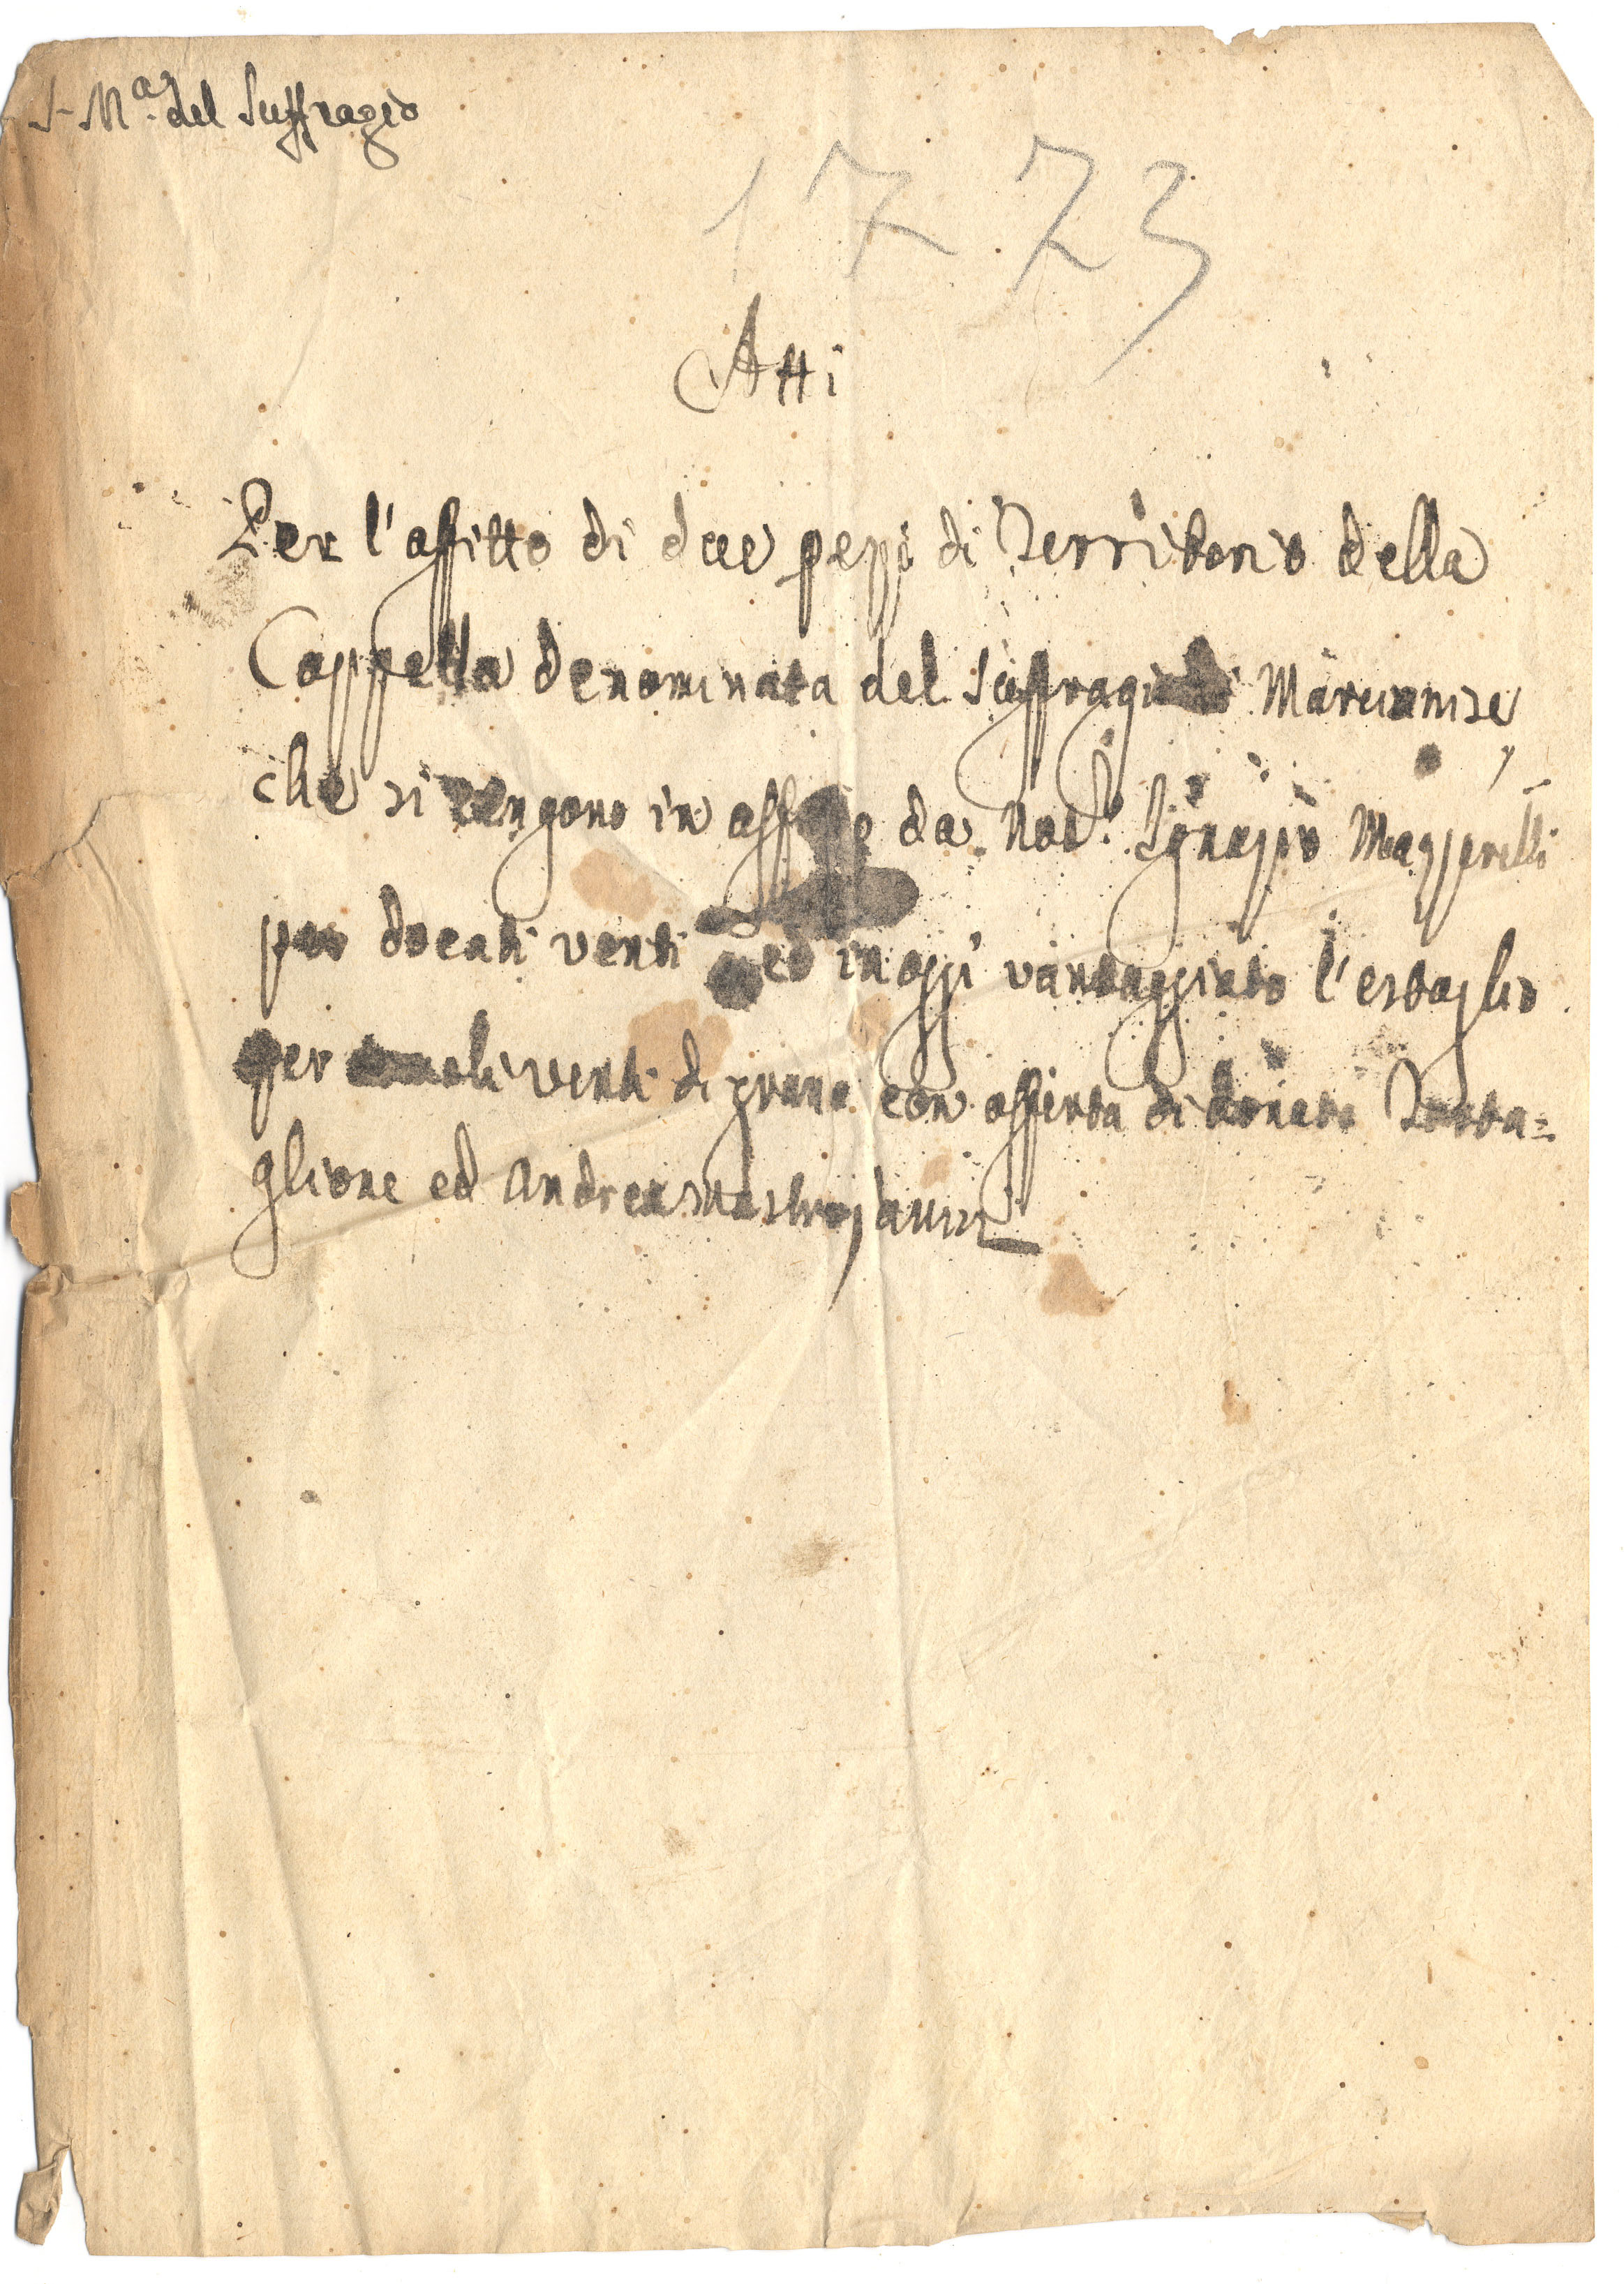 S. M.ª del Suffragio
1773
Atti
Per l'affitto di due pezzi di Territorio della
Cappella denominata del Suffragio di Marcianise
che si tengono in affitto da Not.r Ignazio Mazzarelli
per docati venti ed in oggi vantaggiato l'estaglio
per tomoli venti di grano con offerta di Donato Tarta=
glione ed Andrea Mastrojanni